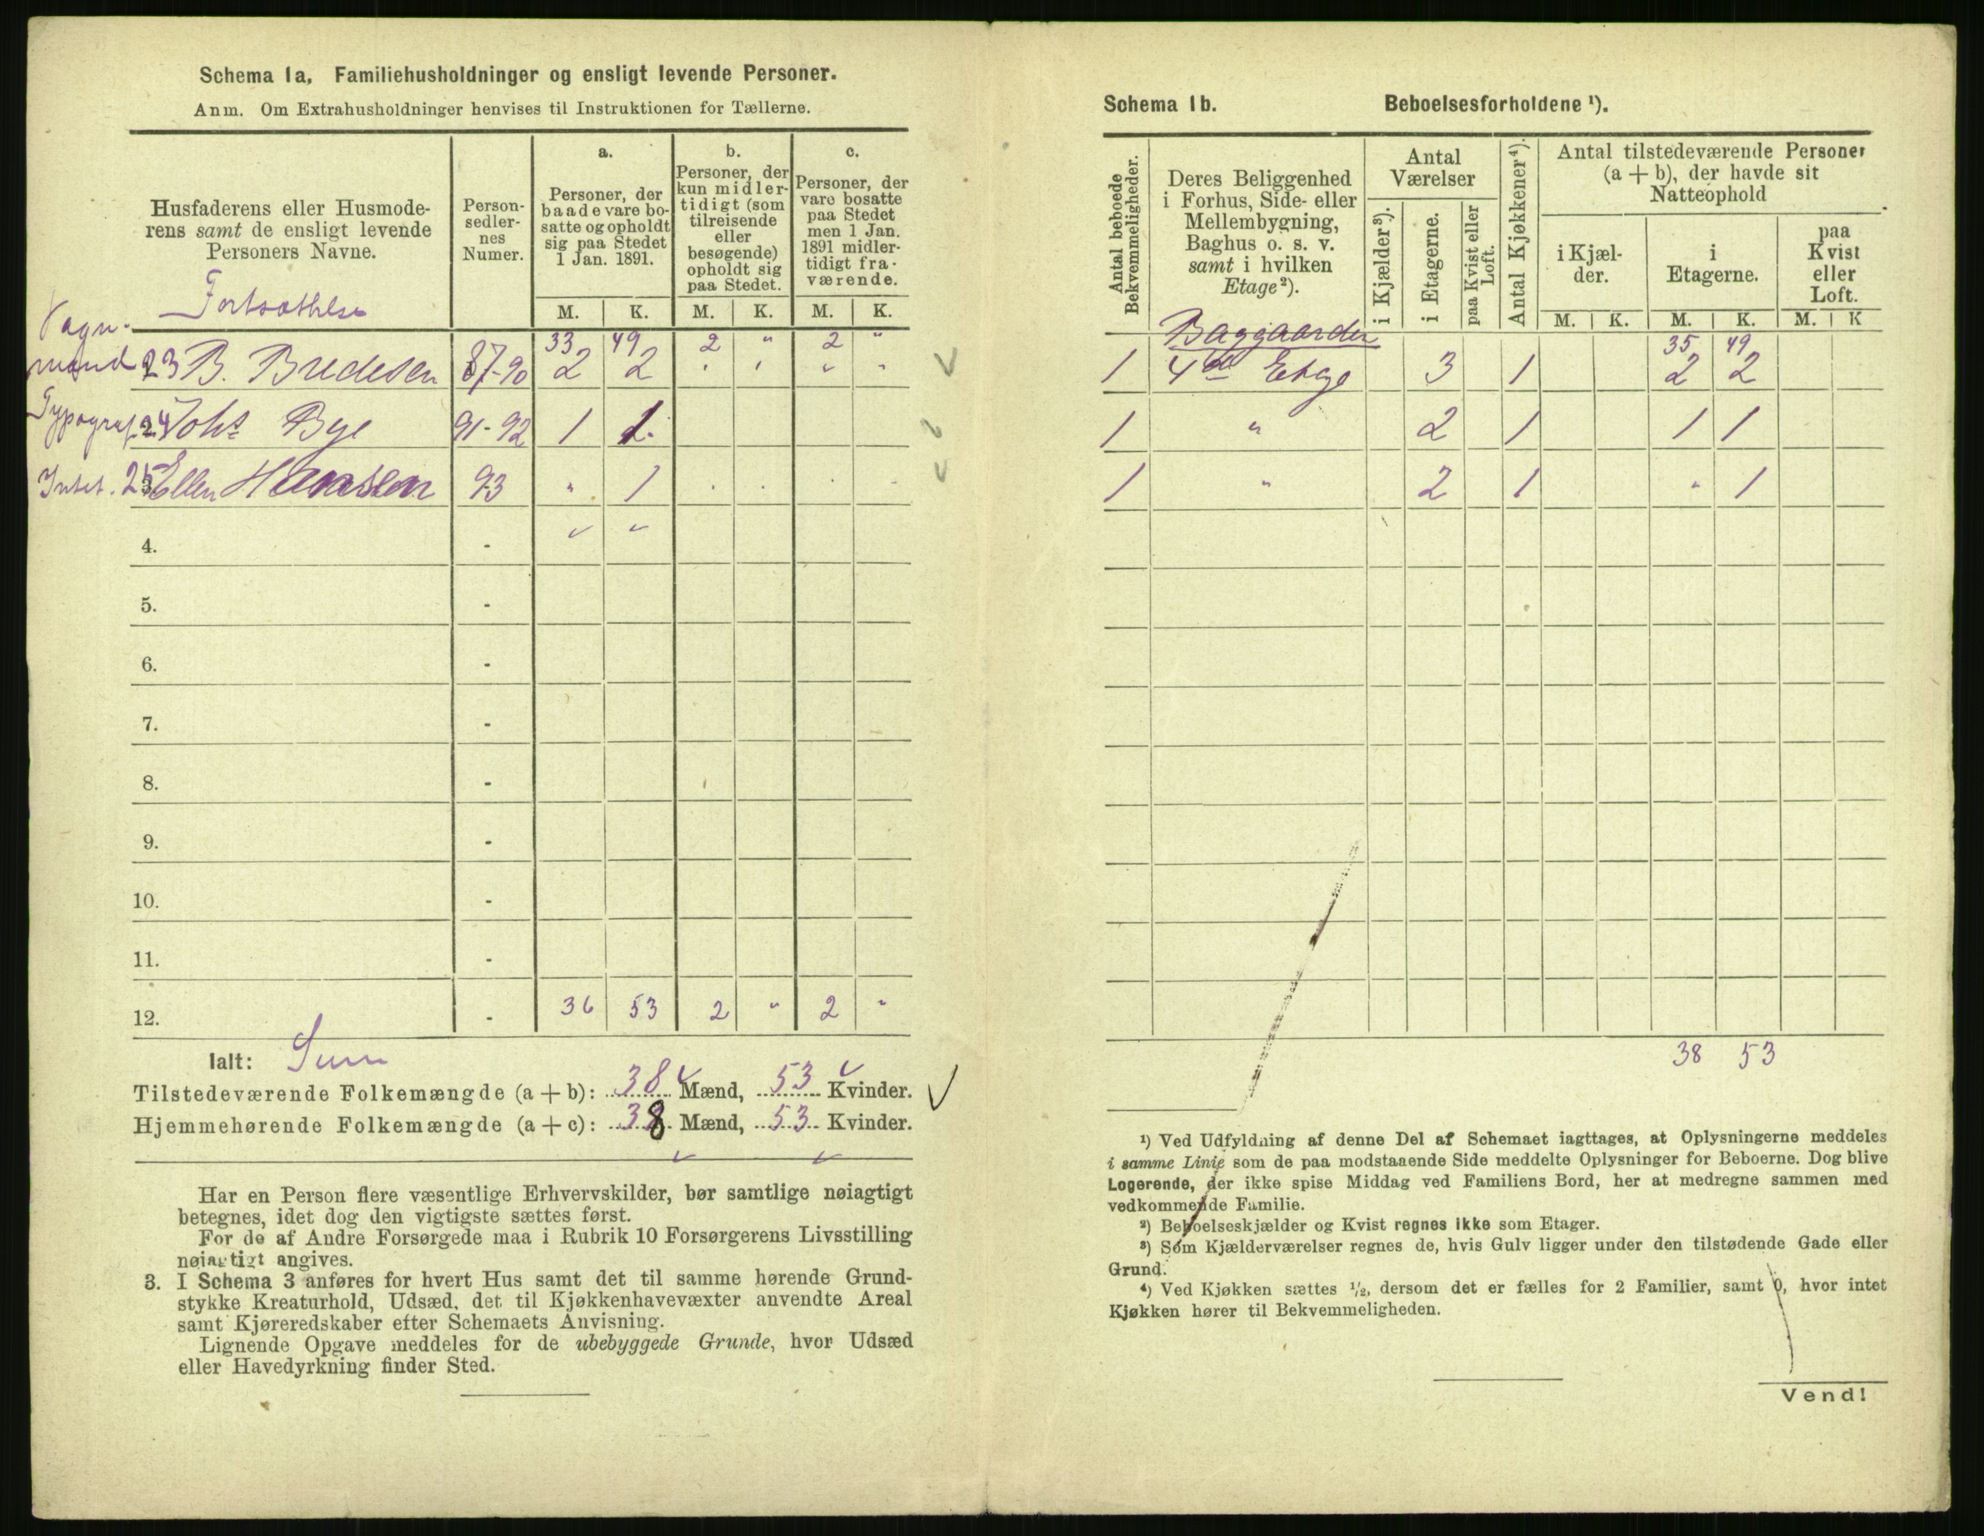 Schema 1a. Familiehusholdninger og ensligt levende Personer.
Anm. Om Extrahusholdninger henvises til Instruktionen for Tællerne.
Husfaderens eller Husmode-
rens samt de ensligt levende
Personers Navne.
Person-
sedler-
nes
Numer.
a.
Personer, der
baade vare bo-
satte og opholdt
sig paa Stedet
1 Jan. 1891.
b.
Personer, der
kun midler-
tidigt (som
tilreisende
eller
besøgende)
opholdt sig
paa Stedet.
c.
Personer, der
vare bosatte
paa Stedet
men 1 Jan.
1891 midler-
tidigt fra-
værende.
M. K. M. K. M. K.
Fortsættelse
33 49 2 " 2 "
Vogn-
mand 23 B. Bredesen 87-90 2 2 " " " "
Typograf. 24 Johs Bye 91-92 1 1.
Intet. 25 Ellen Hansen 93 " 1 . . . .
4. -
5. -
6. -
7. -
8. -
9. -
10. -
11. -
12. - 36 53 2 " 2 "
Ialt: Sum
Tilstedeværende Folkemængde (a + b): 38 Mænd, 53 Kvinder.
Hjemmehørende Folkemængde (a + c): 38 Mænd, 53 Kvinder.
Har en Person flere væsentlige Erhvervskilder, bør samtlige nøiagtigt
betegnes, idet dog den vigtigste sættes først.
For de af Andre Forsørgede maa i Rubrik 10 Forsørgerens Livsstilling
nøiagtigt angives.
3. I Schema 3 anføres for hvert Hus samt det til samme hørende Grund-
stykke Kreaturhold, Udsæd, det til Kjøkkenhavevæxter anvendte Areal
samt Kjøreredskaber efter Schemaets Anvisning.
Lignende Opgave meddeles for de ubebyggede Grunde, hvor Udsæd
eller Havedyrkning finder Sted.
Schema 1b. Beboelsesforholdene ¹).
Antal beboede
Bekvemmeligheder.
Deres Beliggenhed
i Forhus, Side- eller
Mellembygning,
Baghus o. s. v.
samt i hvilken
Etage²).
Antal
Værelser
i Kjælder³).
i Etagerne.
paa Kvist eller
Loft.
Antal Kjøkkener⁴).
Antal tilstedeværende Personer
(a + b), der havde sit
Natteophold
i Kjæl-
der.
i
Etagerne.
paa
Kvist
eller
Loft.
M. K. M. K. M. K
Baggaarden
35 49
1 4de Etage 3 1 2 2
1 " 2 1 1 1
1 " 2 1 " 1
38 53
¹) Ved Udfyldning af denne Del af Schemaet iagttages, at Oplysningerne meddeles
i samme Linie som de paa modstaaende Side meddelte Oplysninger for Beboerne. Dog blive
Logerende, der ikke spise Middag ved Familiens Bord, her at medregne sammen med
vedkommende Familie.
²) Beboelseskjælder og Kvist regnes ikke som Etager.
³) Som Kjælderværelser regnes de, hvis Gulv ligger under den tilstødende Gade eller
Grund.
⁴) Ved Kjøkken sættes ½, dersom det er fælles for 2 Familier, samt 0, hvor intet
Kjøkken hører til Bekvemmeligheden.
Vend!